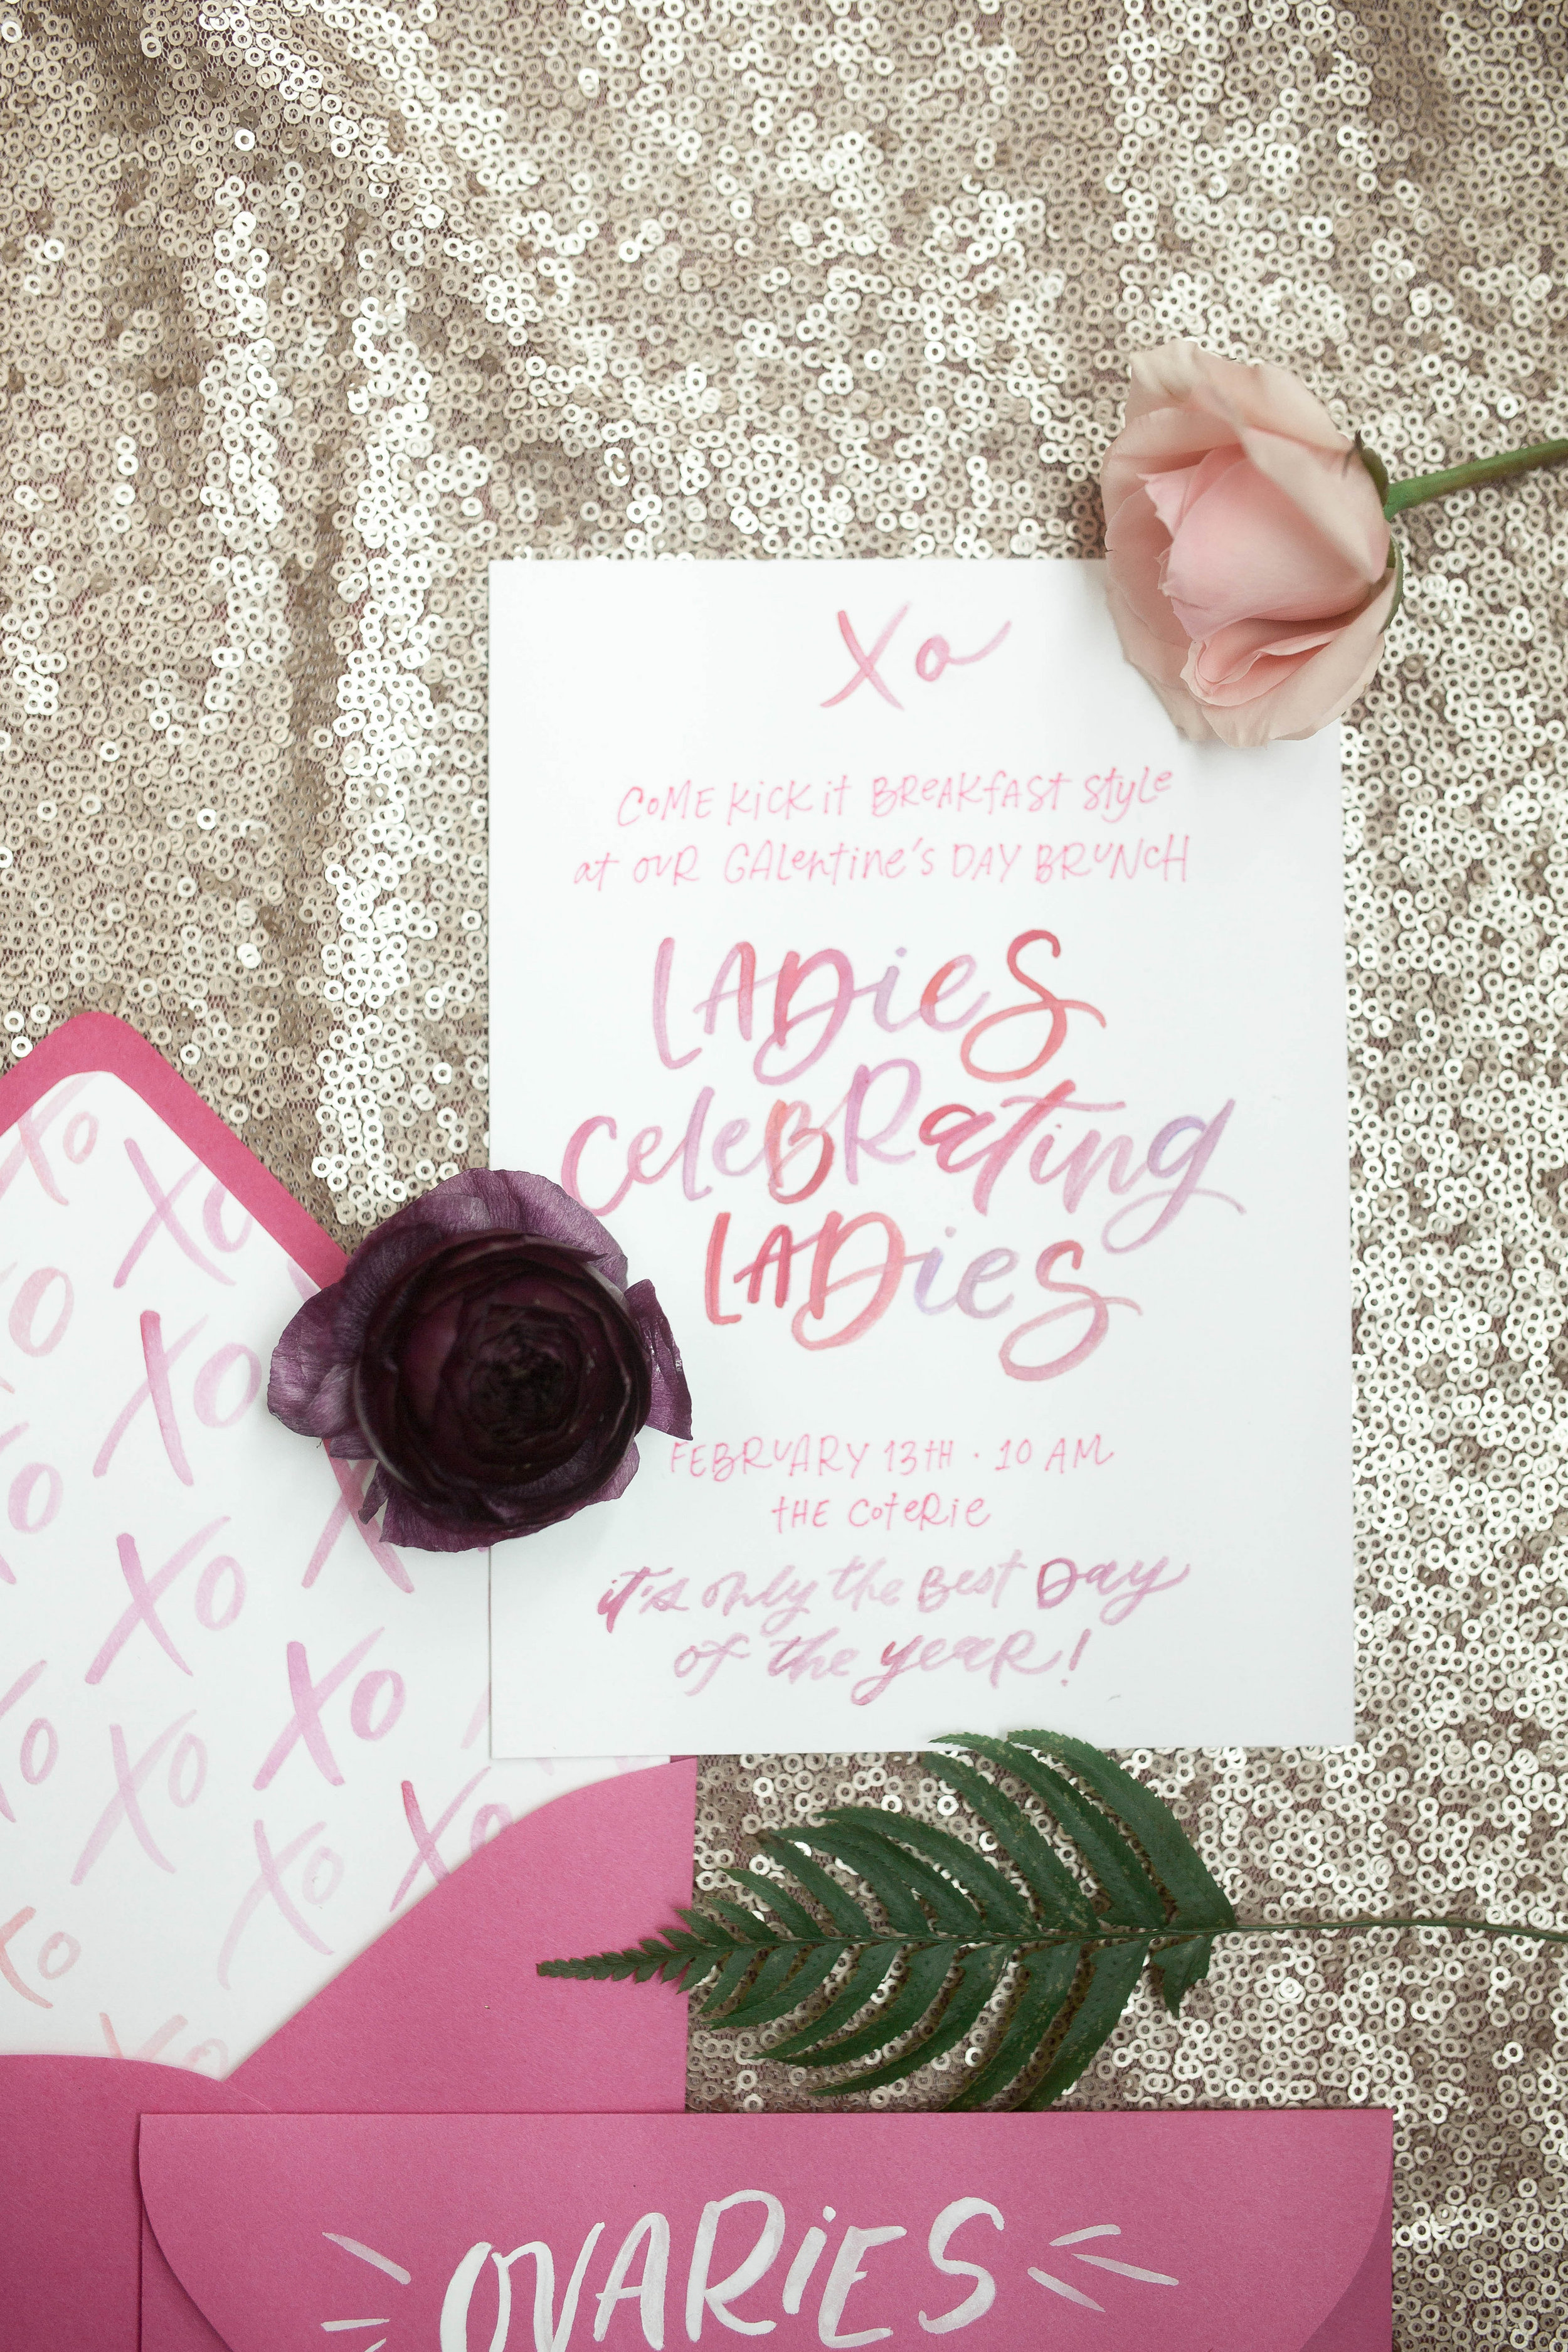 Xo
COME KICK it BREAKfASt StyLe
at OUR GALentine's DAY BRUNCH
LADieS
CeleBRating
LADieS
FEBRUARY 13TH · 10 AM
tHE CoteRie
it's only the Best Day
of the yeaR!
XO
XO
XO
XO
XO
XO
XO
XO
XO
XO
XO
XO
OVARiES